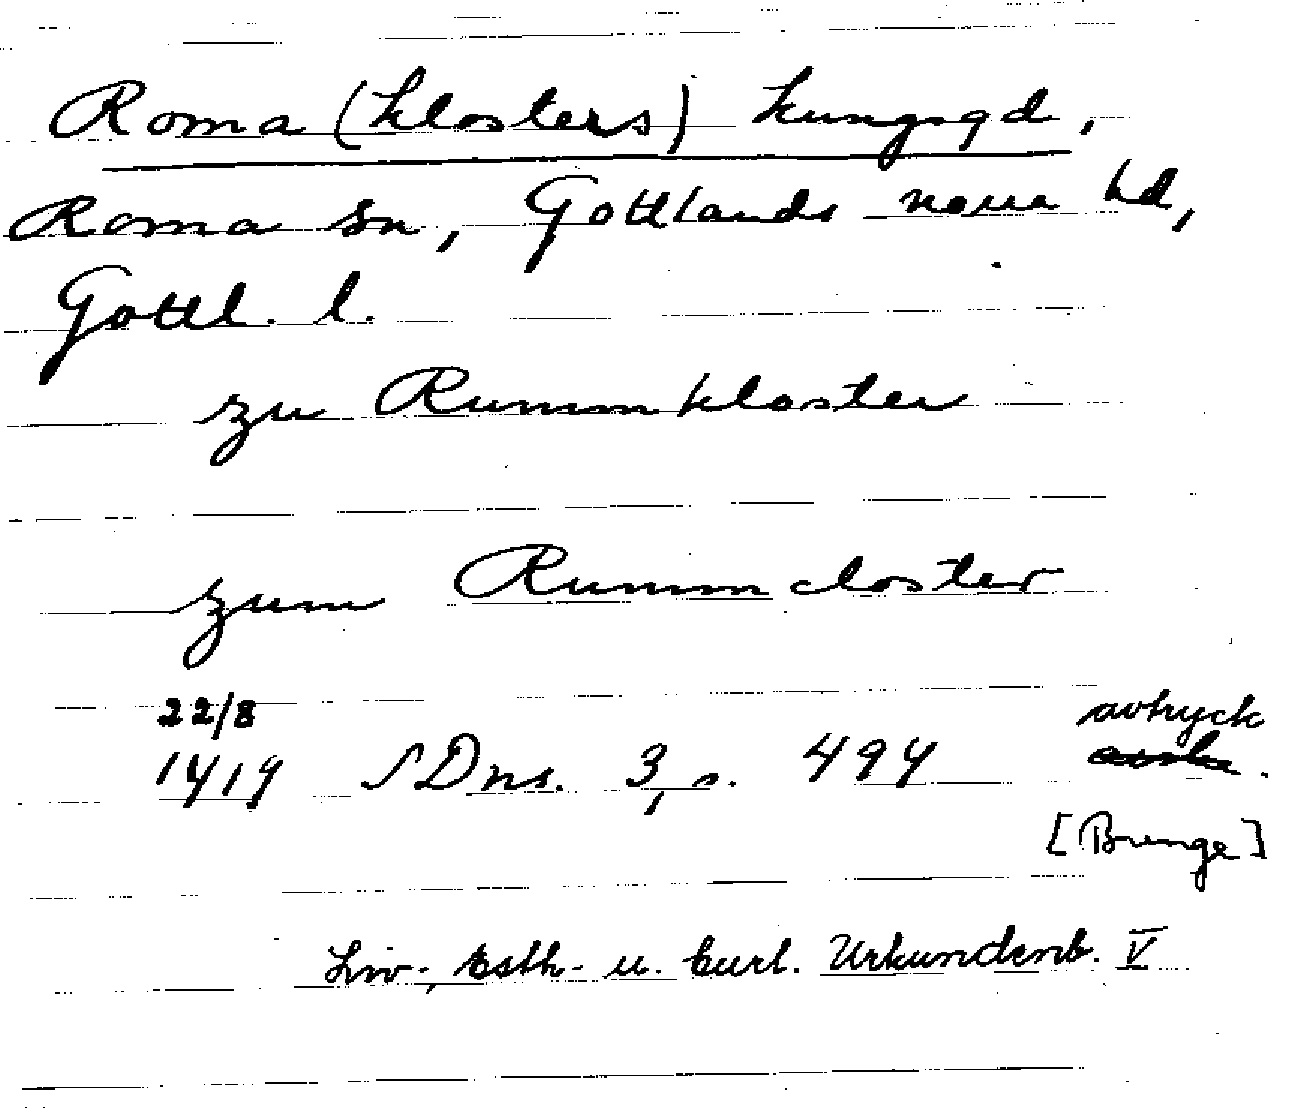 Roma (klosters) kungsgd,
Roma sn, Gottlands norra hd,
Gottl. l.
zu Rummkloster
zum Rummcloster
22/8
1419 SDns. 3, s. 494 avtryck
[Bunge]
Liv-, Esth- u. Curl. Urkundenb. V